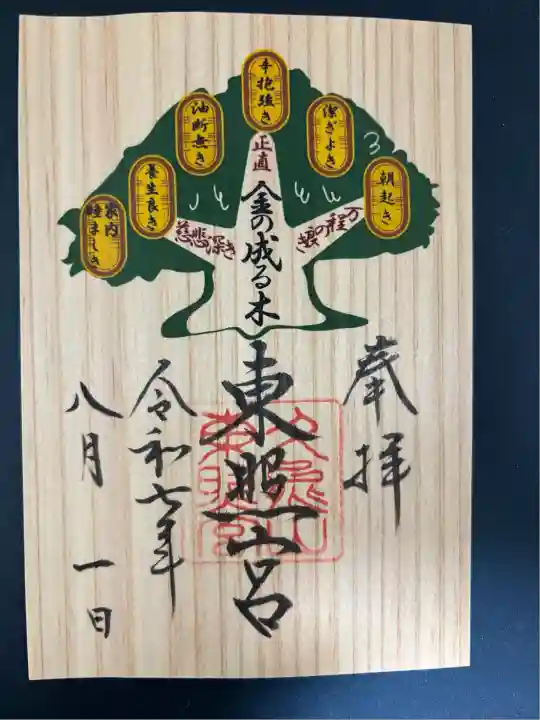 朝起き
潔ぎよき
辛抱強き
油断無き
養生良き
家内睦ましき
正直
万の程の良き
慈悲深き
金の成る木
奉拝
東照宮
令和七年
八月一日